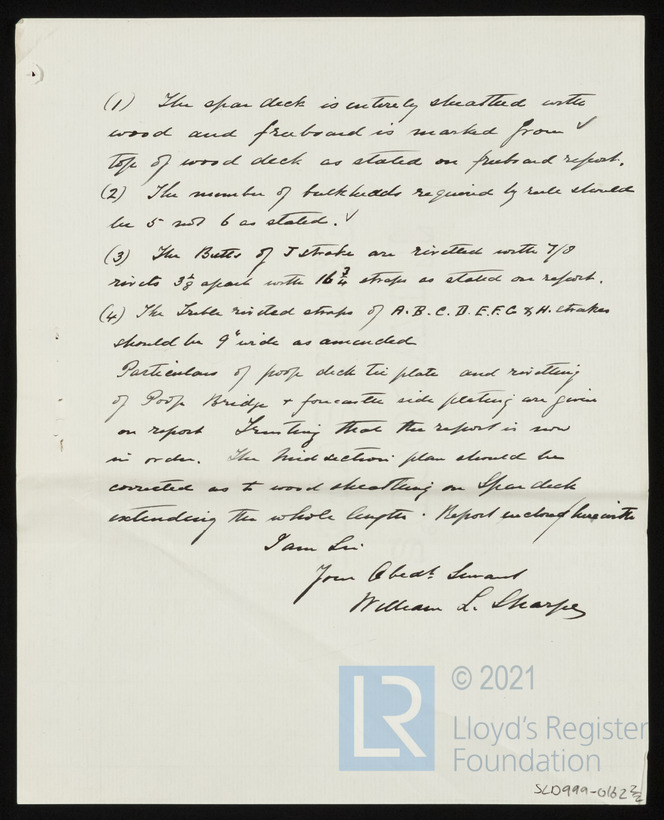 (1) The spar deck is entirely sheathed with
wood and freeboard is marked from ✓
top of wood deck as stated on freeboard report.
(2) The number of bulkheads required by rule should
be 5 not 6 as stated. ✓
(3) The Butts of J strake are rivetted with 7/8
rivets 3 1/8 apart with 16 3/4 straps as stated on report.
(4) The Treble riveted straps of A. B. C. D. E. F. G & H. strakes
should be 9" wide as amended
Particulars of poop deck tie plate and rivetting
of Poop Bridge + forecastle side plating are given
on report Trusting that the report is now
in order. The Midsection plan should be
corrected as to wood sheathing on Spar deck
extending the whole length. Report enclosed herewith
I am Sir
Your Obedt. Servant
William L. Sharpe
LR
© 2021
Lloyd's Register
Foundation
SLD999-0162 2/2